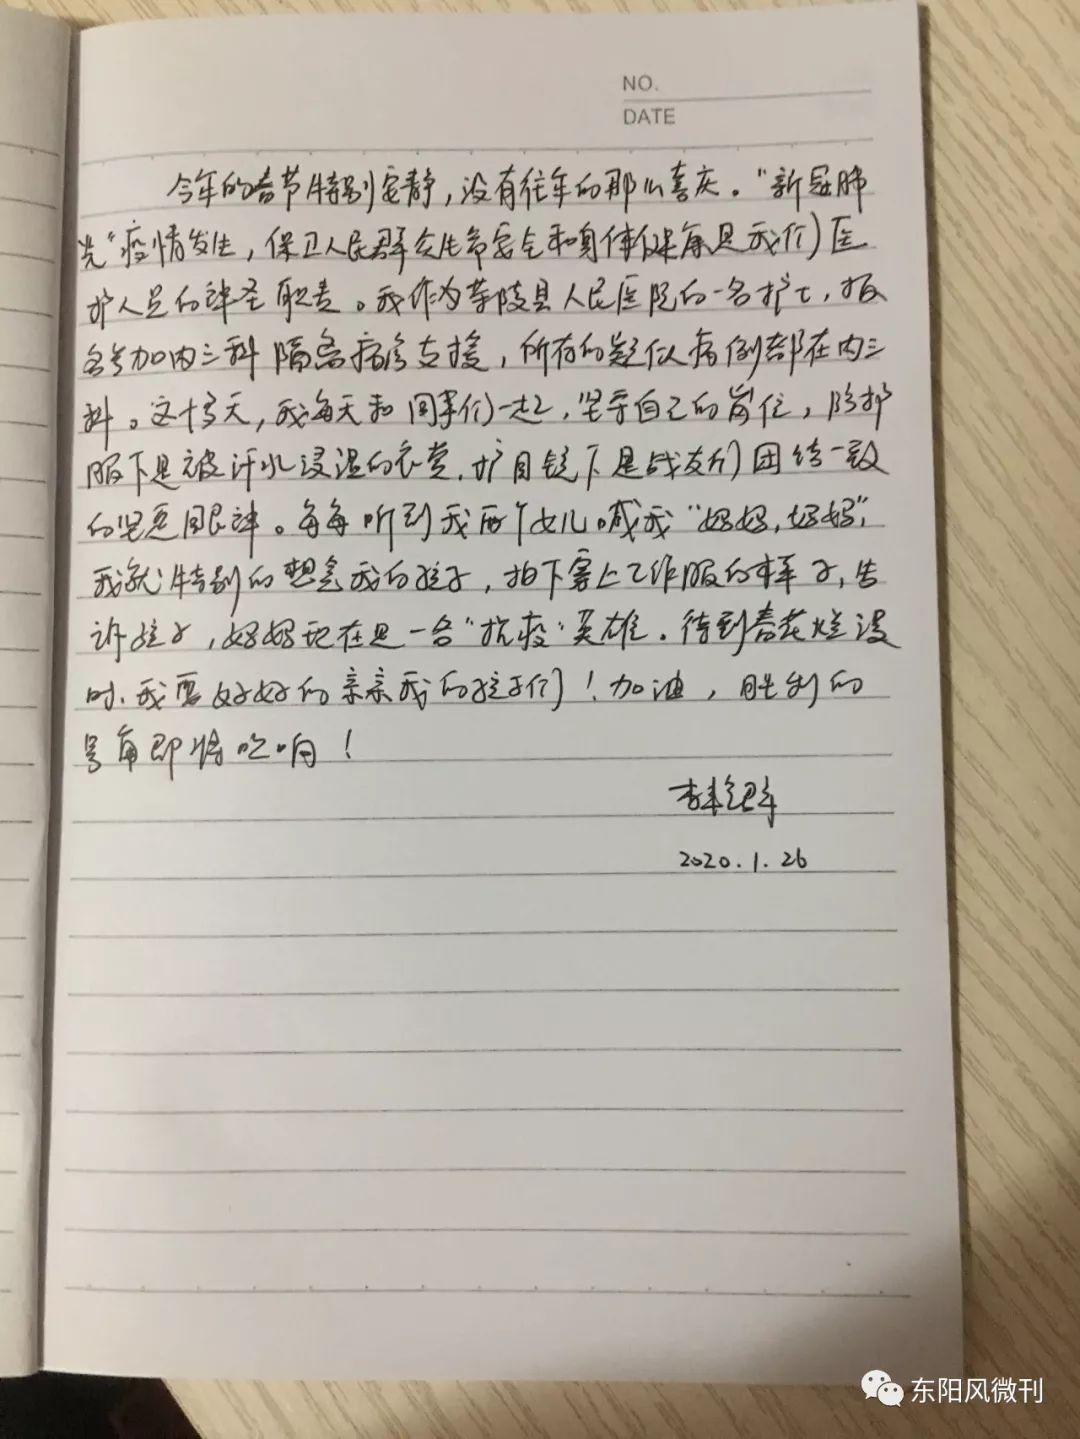 NO.
DATE
今年的春节特别安静，没有往年的那么喜庆。“新冠肺
炎”疫情发生，保卫人民群众生命安全和身体健康是我们医
护人员的神圣职责。我作为茶陵县人民医院的一名护士，报
名参加内三科隔离病房支援，所有的疑似病例都在内三
科。这十多天，我每天和同事们一起，坚守自己的岗位，防护
服下是被汗水浸湿的衣裳，护目镜下是战友们团结一致
的坚毅眼神。每每听到我两个女儿喊我“妈妈，妈妈”，
我就特别的想念我的孩子，拍下穿上工作服的样子，告
诉孩子，妈妈现在是一名“抗疫”英雄。待到春花烂漫
时，我要好好的亲亲我的孩子们！加油，胜利的
号角即将吹响！
2020.1.26
东阳风微刊